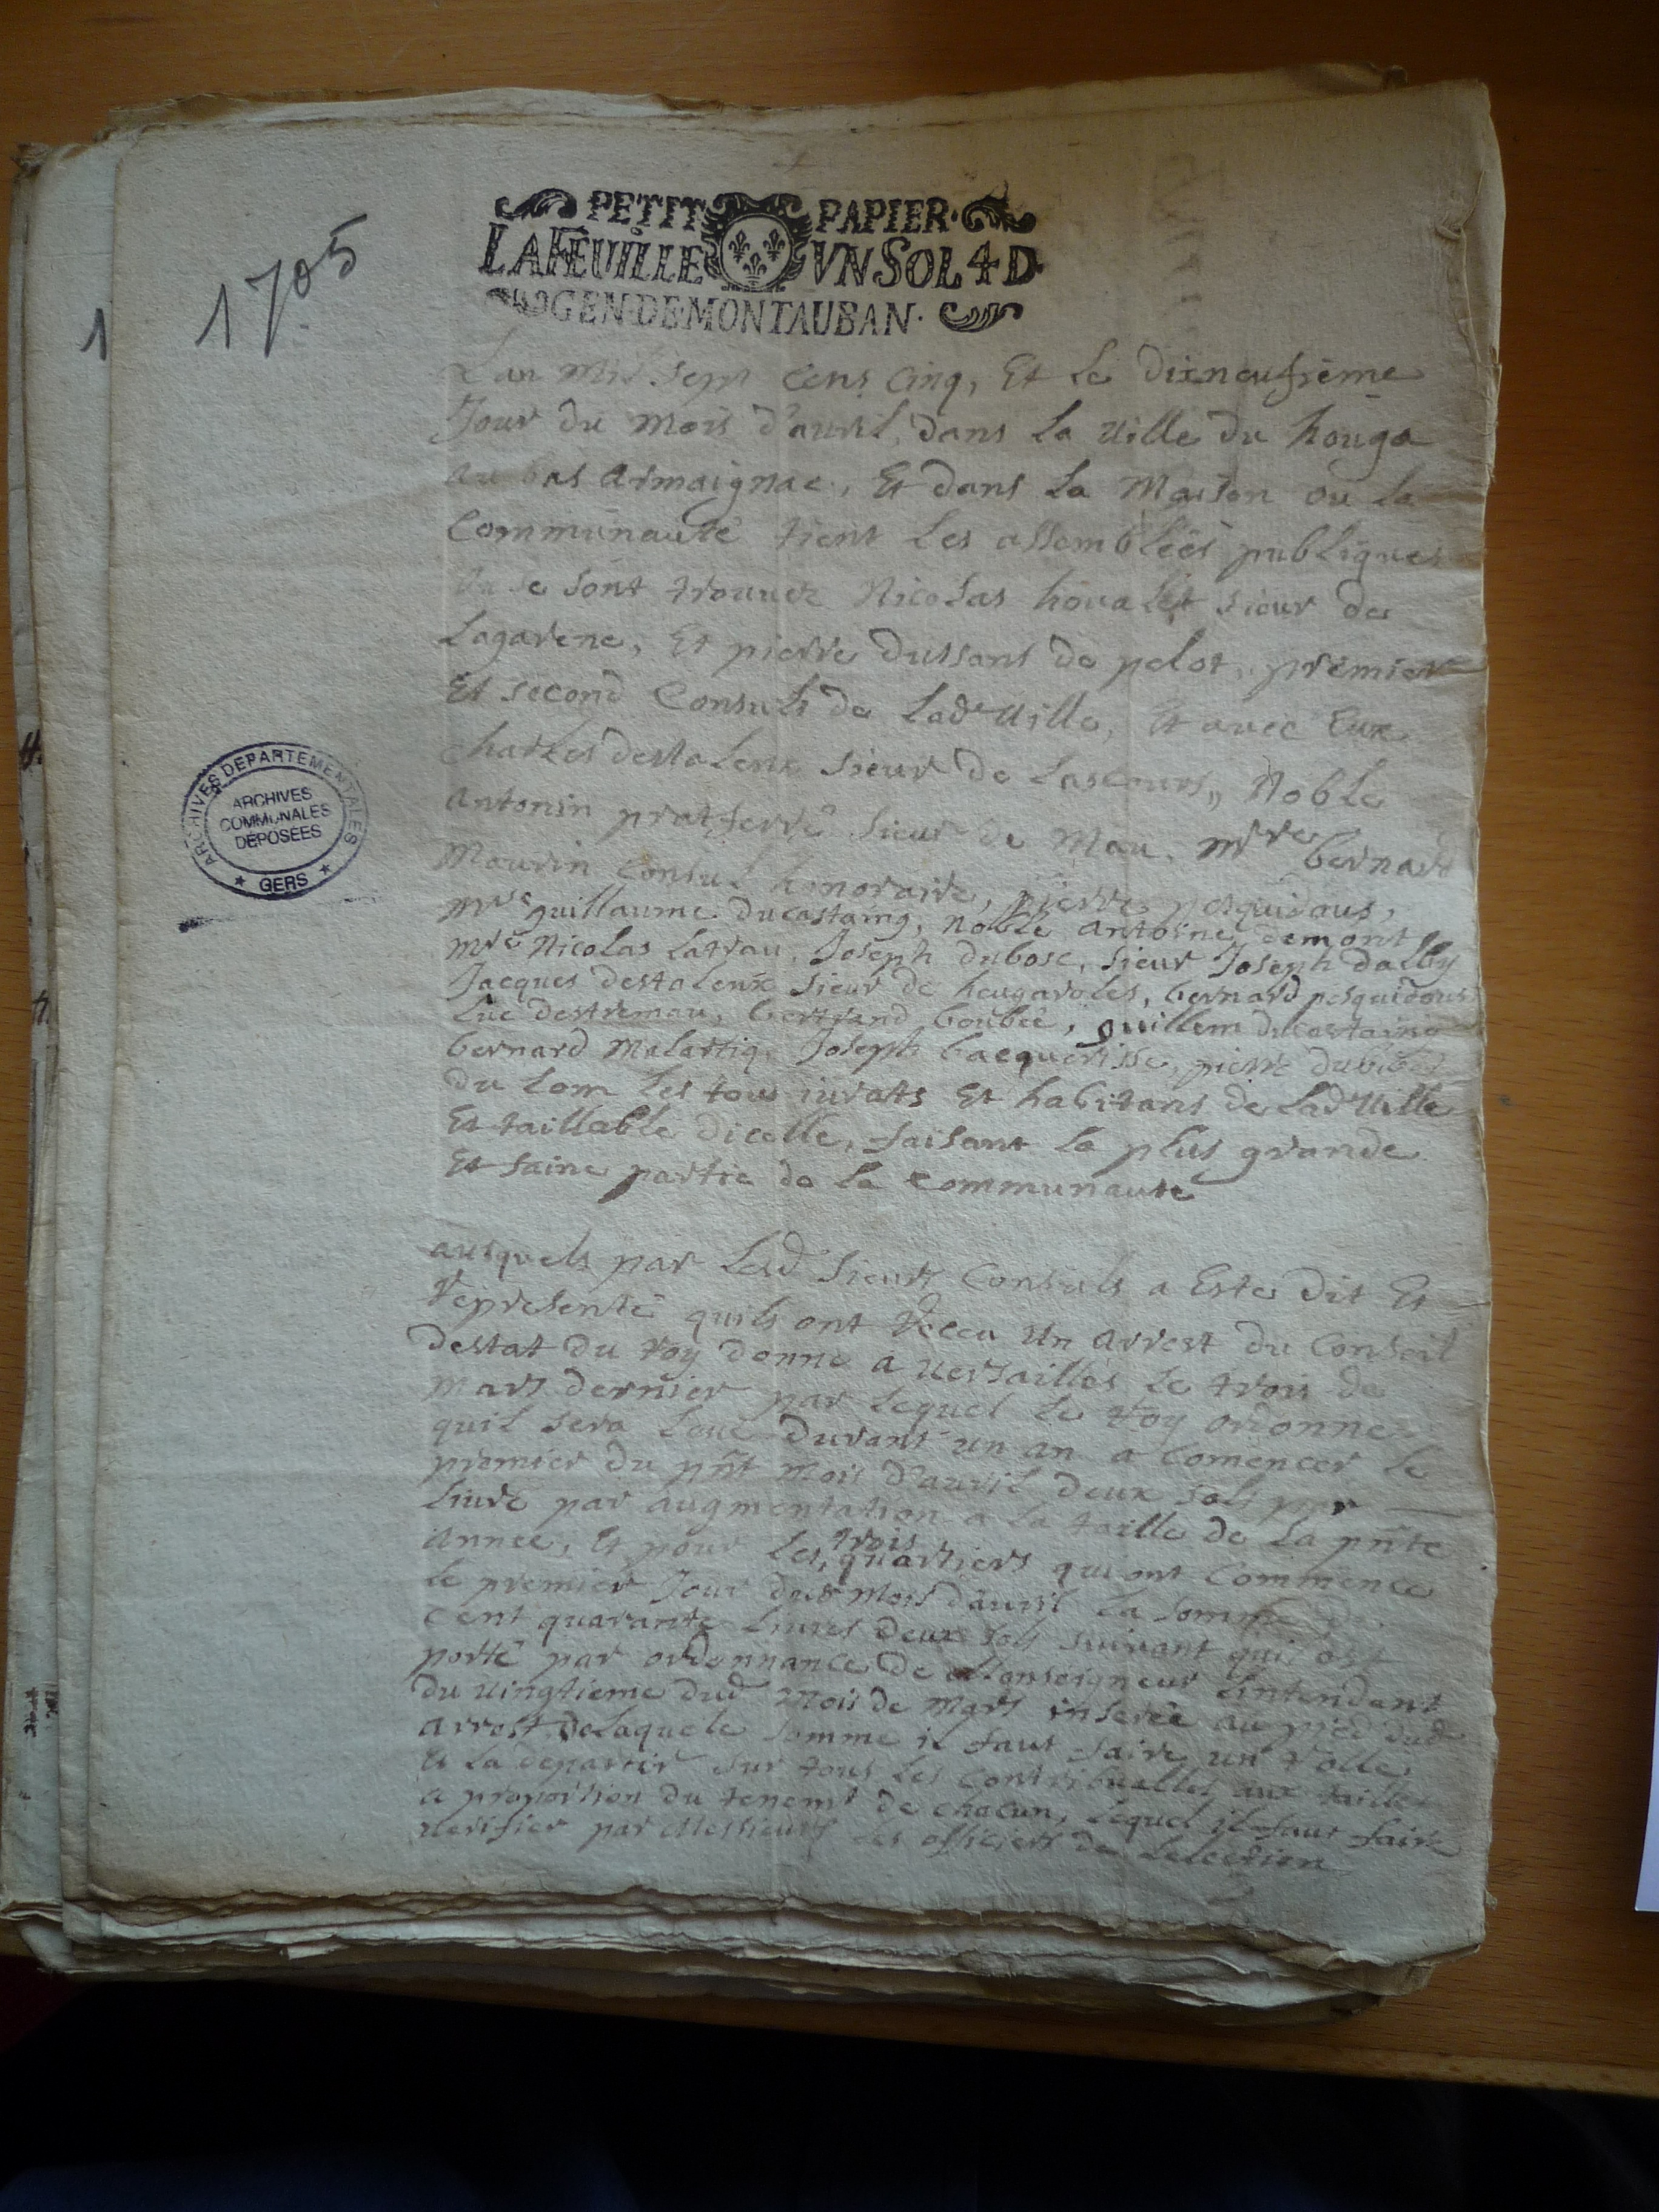 1705
PETIT PAPIER
LA FEUILLE VN SOL 4 D
GEN·DE·MONTAUBAN·
Lan Mil sept cens cinq, Et le dixneufvieme
Jour du Mois d'auril, dans la Uille du houga
au bas Armaignac, Et dans la Maison ou la
Communauté tient les assemblées publiques
ou se sont trouuez Nicolas houalet sieur de
Lagarene, Et pierre dussans de pelot, premier
Et second Consuls de lade Uille, Et auec Eux
charles destalenx sieur de Lascours, Noble
antonin pratferré sieur de Mau, Mre bernard
Mourin Consul honoraire, pierre pesquidous,
Mre guillaume ducastaing, noble antoine demont
Mre Nicolas latrau, Joseph dubosc, sieur Joseph dalby
Jacques destalenx sieur de heugaroles, bernard pesquidous
luc destremau, bertrand boubée, guillem ducastaing
bernard Malartiq, Joseph bacquerisse, pierre
du lom les tous jurats Et habitans de lad Uille
Et taillable dicelle, faisant la plus grande
Et saine partie de la Communauté
ausquels par Lesd sieurs Consuls a Este dit Et
representé quils ont receu un arrest du Conseil
destat du roy donne a uersailles le trois de
mars dernier par lequel le roy ordonne
quil sera leué durant un an a comencer le
premier du pnt mois d'auril deux sols pour
liure par augmentation a la taille de la pnte
année, Et pour les trois quartiers qui ont Commencé
le premier Jour dud Mois dauril la somme de
cent quarante liures deux sols suiuant qui est
porté par ordonnance de Monseigneur Lintendant
du uingtieme dud mois de mars inserée au pied dud
arrest delaquele somme il faut faire un rolle
Et la departir sur tous les contribuables aux tailles
a proportion du tenemt de chacun, lequel il faut faire
uerifier par Messieurs les officiers de Lelection
ARCHIVES DEPARTEMENTALES
ARCHIVES
COMMUNALES
DÉPOSÉES
★ GERS ★